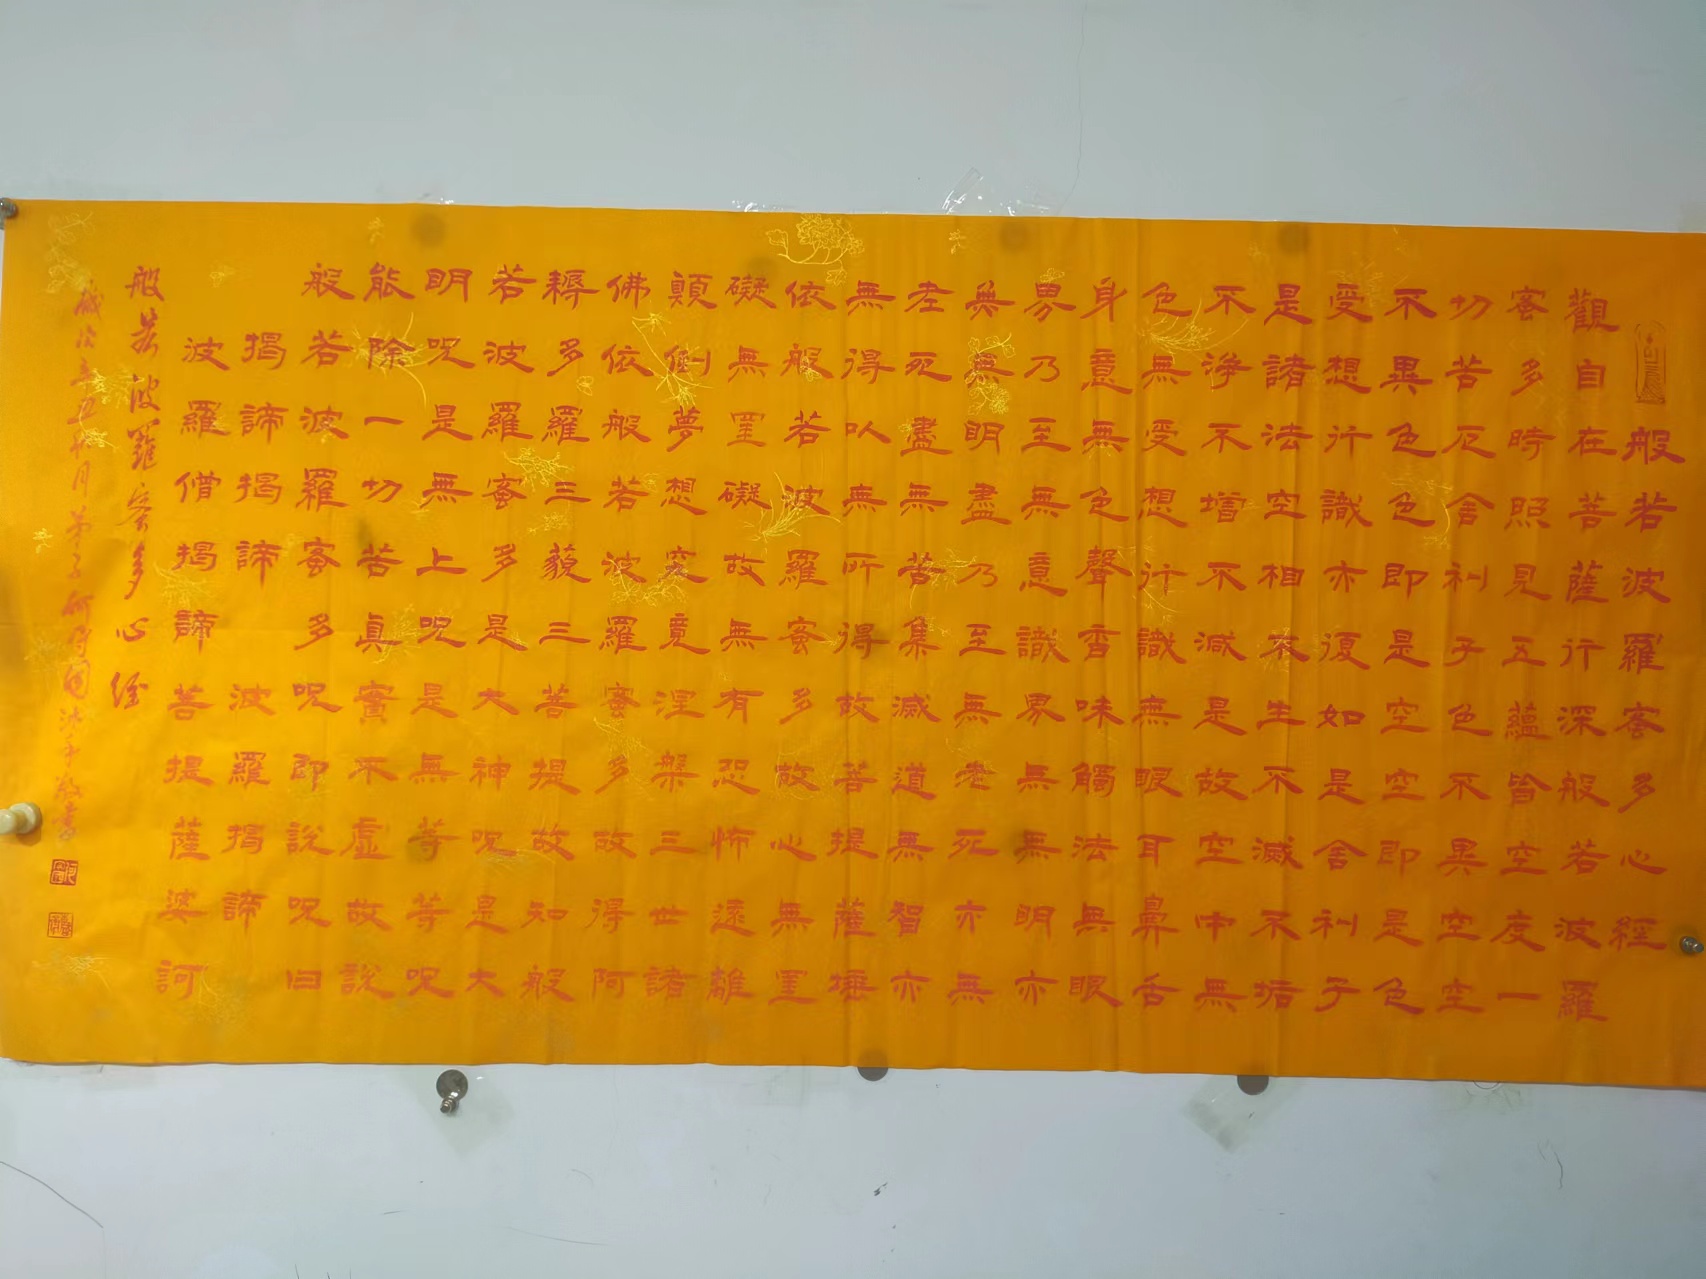 般若波羅蜜多心經
觀自在菩薩行深般若波羅
蜜多時照見五蘊皆空度一
切苦厄舍利子色不異空空
不異色色即是空空即是色
受想行識亦復如是舍利子
是諸法空相不生不滅不垢
不淨不增不減是故空中無
色無受想行識無眼耳鼻舌
身意無色聲香味觸法無眼
界乃至無意識界無無明亦
無無明盡乃至無老死亦無
老死盡無苦集滅道無智亦
無得以無所得故菩提薩埵
依般若波羅蜜多故心無罣
礙無罣礙故無有恐怖遠離
顛倒夢想究竟涅槃三世諸
佛依般若波羅蜜多故得阿
耨多羅三藐三菩提故知般
若波羅蜜多是大神呪是大
明呪是無上呪是無等等呪
能除一切苦真實不虛故說
般若波羅蜜多呪即說呪曰
揭諦揭諦 波羅揭諦
波羅僧揭諦菩提薩婆訶
般若波羅蜜多心经
歲次辛丑秋月弟子何守國沐手敬書